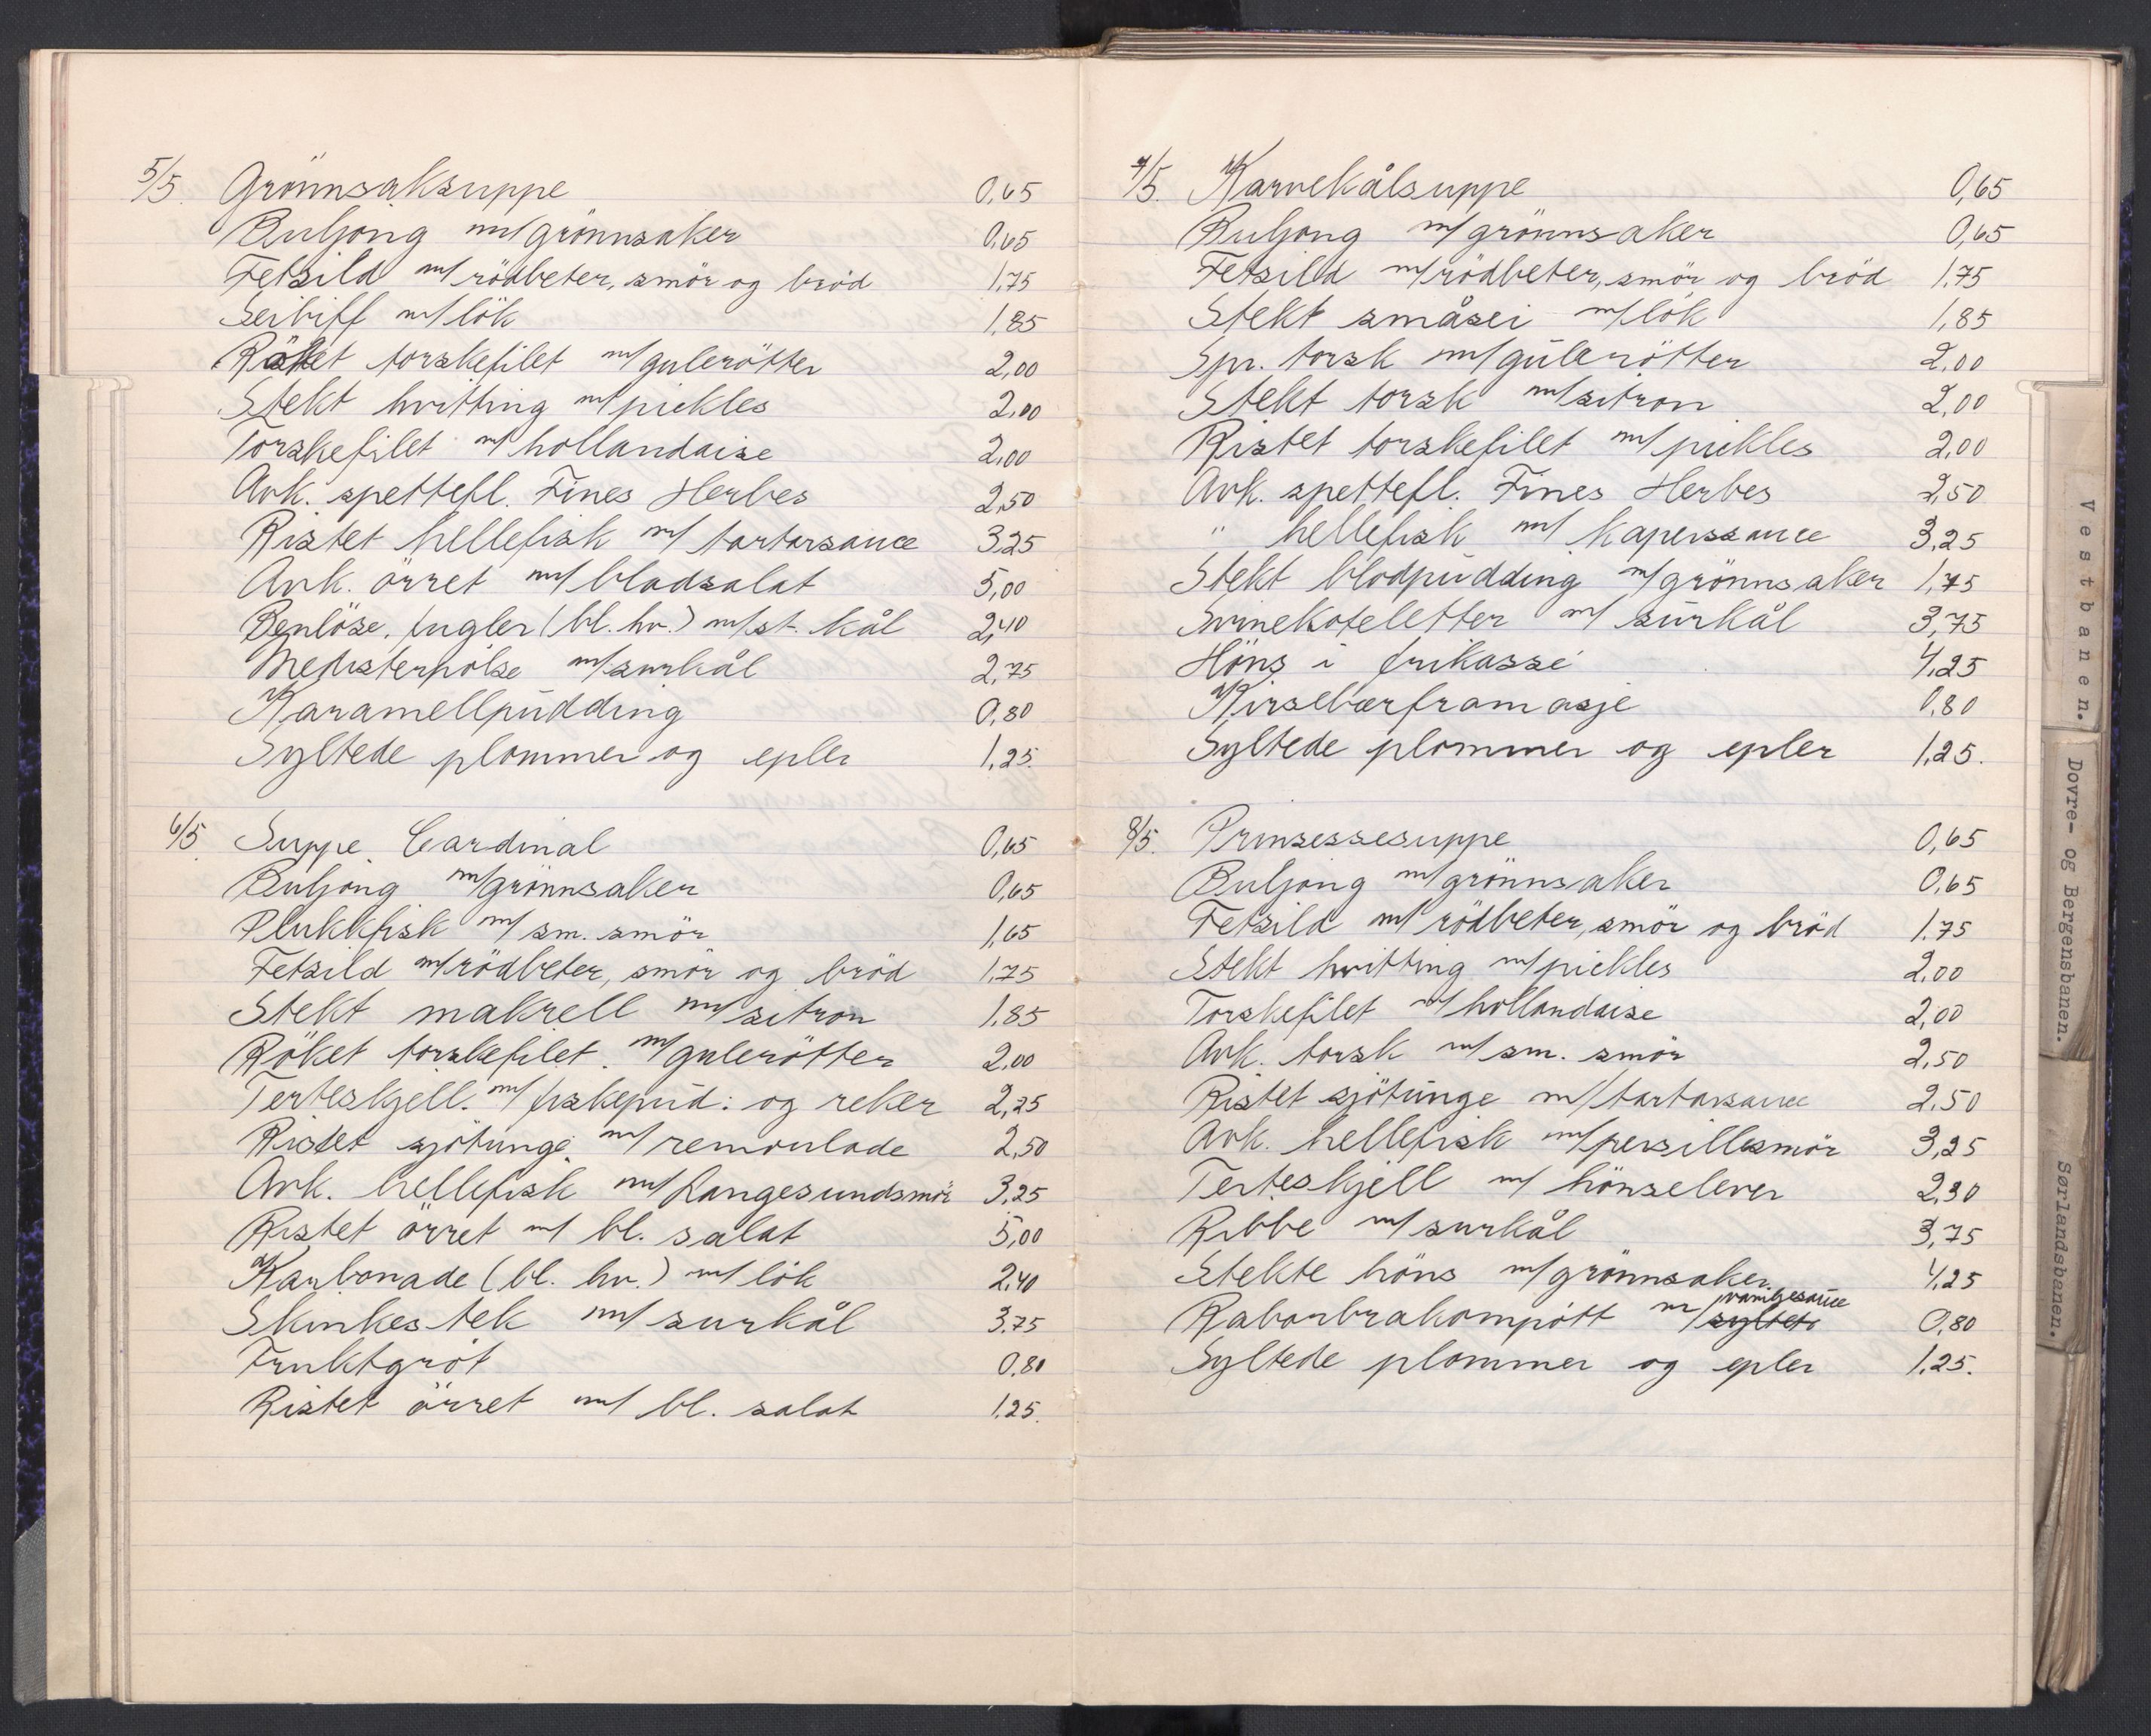 5/5. Grönnsaksuppe 0,65
Buljong m/grönnsaker 0,65
Fetsild m/rödbeter, smör og bröd 1,75
Seibiff m/lök 1,85
Röket torskefilet m/gulerötter 2,00
Stekt hvitting m/pickles 2,00
Torskefilet m/hollandaise 2,00
Avk. spettefl. Fines Herbes 2,50
Ristet hellefisk m/ tartarsauce 3,25
Avk. örret m/bladsalat 5,00
Benlöse fugler (bl. hv.) m/st. kål 2,40
Medisterpölse m/surkål 2,75
Karamellpudding 0,80
Syltede plommer og epler 1,25.
6/5. Suppe Cardinal 0,65
Buljong m/grönnsaker 0,65
Plukkfisk m/ sm. smör 1,65
Fetsild m/rödbeter, smör og bröd 1,75
Stekt makrell m/sitron 1,85
Röket torskefilet. m/gulerötter 2,00
Terteskjell. m/ fiskepud: og reker 2,25
Ristet sjötunge m/remoulade 2,50
Avk. hellefisk m/Langesundsmör 3,25
Ristet örret m/ bl. salat 5,00
Karbonade (bl. hv.) m/ lök 2,40
Skinkestek m/surkål 3,75
Fruktgröt 0,80
Ristet örret m/ bl. salat 1,25.
7/5. Karvekålsuppe 0,65
Buljong m/grönnsaker 0,65
Fetsild m/rödbeter, smör og bröd 1,75
Stekt småsei m/lök 1,85
Spr. torsk m/gulerötter 2,00
Stekt torsk m/sitron 2,00
Ristet torskefilet m/ pickles 2,00
Avk. spettefl. Fines Herbes 2,50
" hellefisk m/ kaperssauce 3,25
Stekt blodpudding m/grönnsaker 1,75
Svinekoteletter m/ surkål 3,75
Höns i frikassé 4,25
Kirsebærfromasje 0,80
Syltede plommer og epler 1,25.
8/5. Prinsessesuppe 0,65
Buljong m/grönnsaker 0,65
Fetsild m/ rödbeter, smör og bröd 1,75
Stekt hvitting m/pickles 2,00
Torskefilet m/hollandaise 2,00
Avk. torsk m/ sm. smör 2,50
Ristet sjötunge m/tartarsauce 2,50
Avk. hellefisk m/persillesmör 3,25
Terteskjell m/ hönselever 2,30
Ribbe m/surkål 3,75
Stekte höns m/grönnsaker 4,25
vaniljesauce
Rabarbrakompott m/ syltet 0,80
Syltede plommer og epler 1,25.
Vestbanen.
Dovre- og Bergensbanen.
Sørlandsbanen.